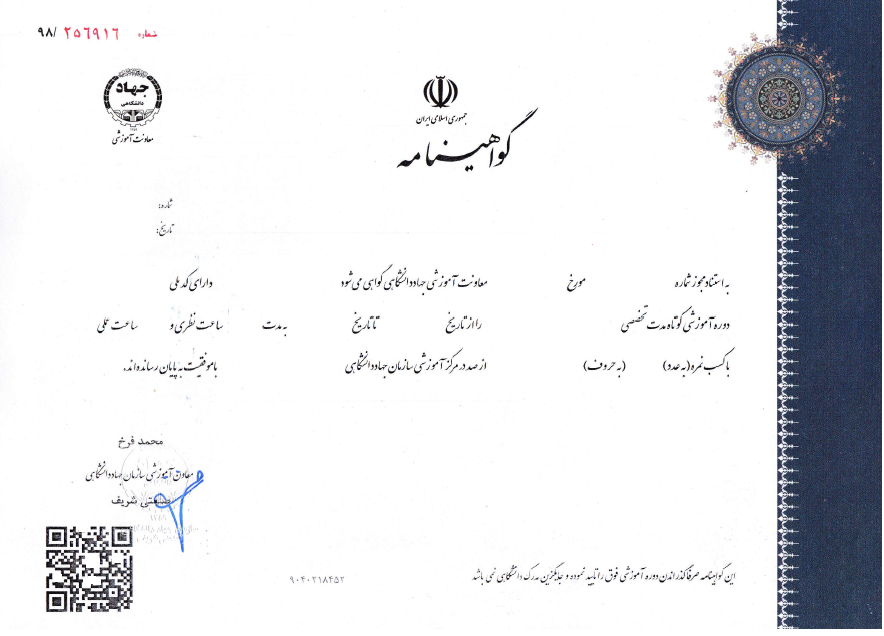 شماره ۲۵۶۹۱۶ /۹۸
جهاد
دانشگاهی
معاونت آموزشی
جمهوری اسلامی ایران
گواهینامه
شماره:
تاریخ:
به استناد مجوز شماره مورخ معاونت آموزشی جهاد دانشگاهی گواهی می شود دارای کد ملی
دوره آموزشی کوتاه مدت تخصصی را از تاریخ تا تاریخ به مدت ساعت نظری و ساعت عملی
با کسب نمره (به عدد) (به حروف) از صد در مرکز آموزشی سازمان جهاد دانشگاهی با موفقیت به پایان رسانده اند.
محمد فرخ
معاون آموزشی سازمان جهاد دانشگاهی
صنعتی شریف
این گواهینامه صرفا گذراندن دوره آموزشی فوق را تایید نموده و جایگزین مدرک دانشگاهی نمی باشد
۹۰۴۰۲۱۸۴۵۲